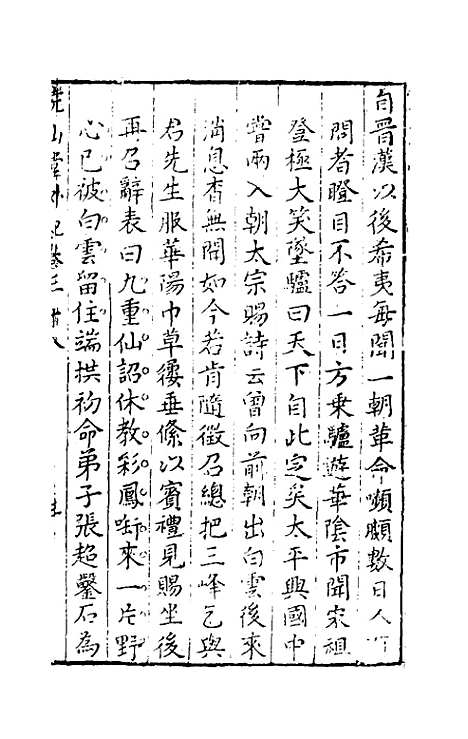 自晋漢以後希夷每聞一朝革命嚬顣數日人
問者瞪目不答一日方乗驢遊華陰市聞宋祖
登極大笑墜驢曰天下自此定矣太平興國中
嘗兩入朝太宗賜詩云曾向前朝出白雲後來
消息杳無聞如今若肯隨徵召總把三峰乞與
君先生服華陽巾草屨垂絛以賓禮見賜坐後
再召辭表曰九重仙詔休教彩鳳啣來一片野
心已彼白雲留住端拱初命弟子張超鑿石為
堯山堂外紀卷三